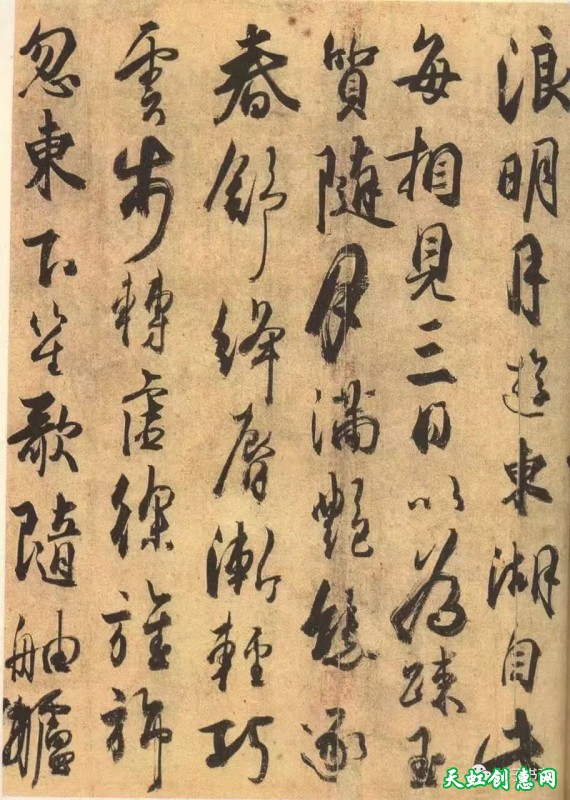 浪明月遊東湖自此
每相見三日以為踈玉
質隨月滿艷態逐
春舒絳脣漸輕巧
雲步轉虛徐旌旆
忽東下笙歌隨舳艫
天虹创惠网